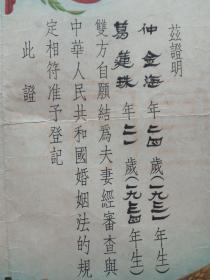 茲證明
仲金海 年二四歲(一九三二年生)
葛蓮珠 年二二歲(一九三四年生)
雙方自願結爲夫妻經審查與
中華人民共和國婚姻法的規
定相符准予登記
此證